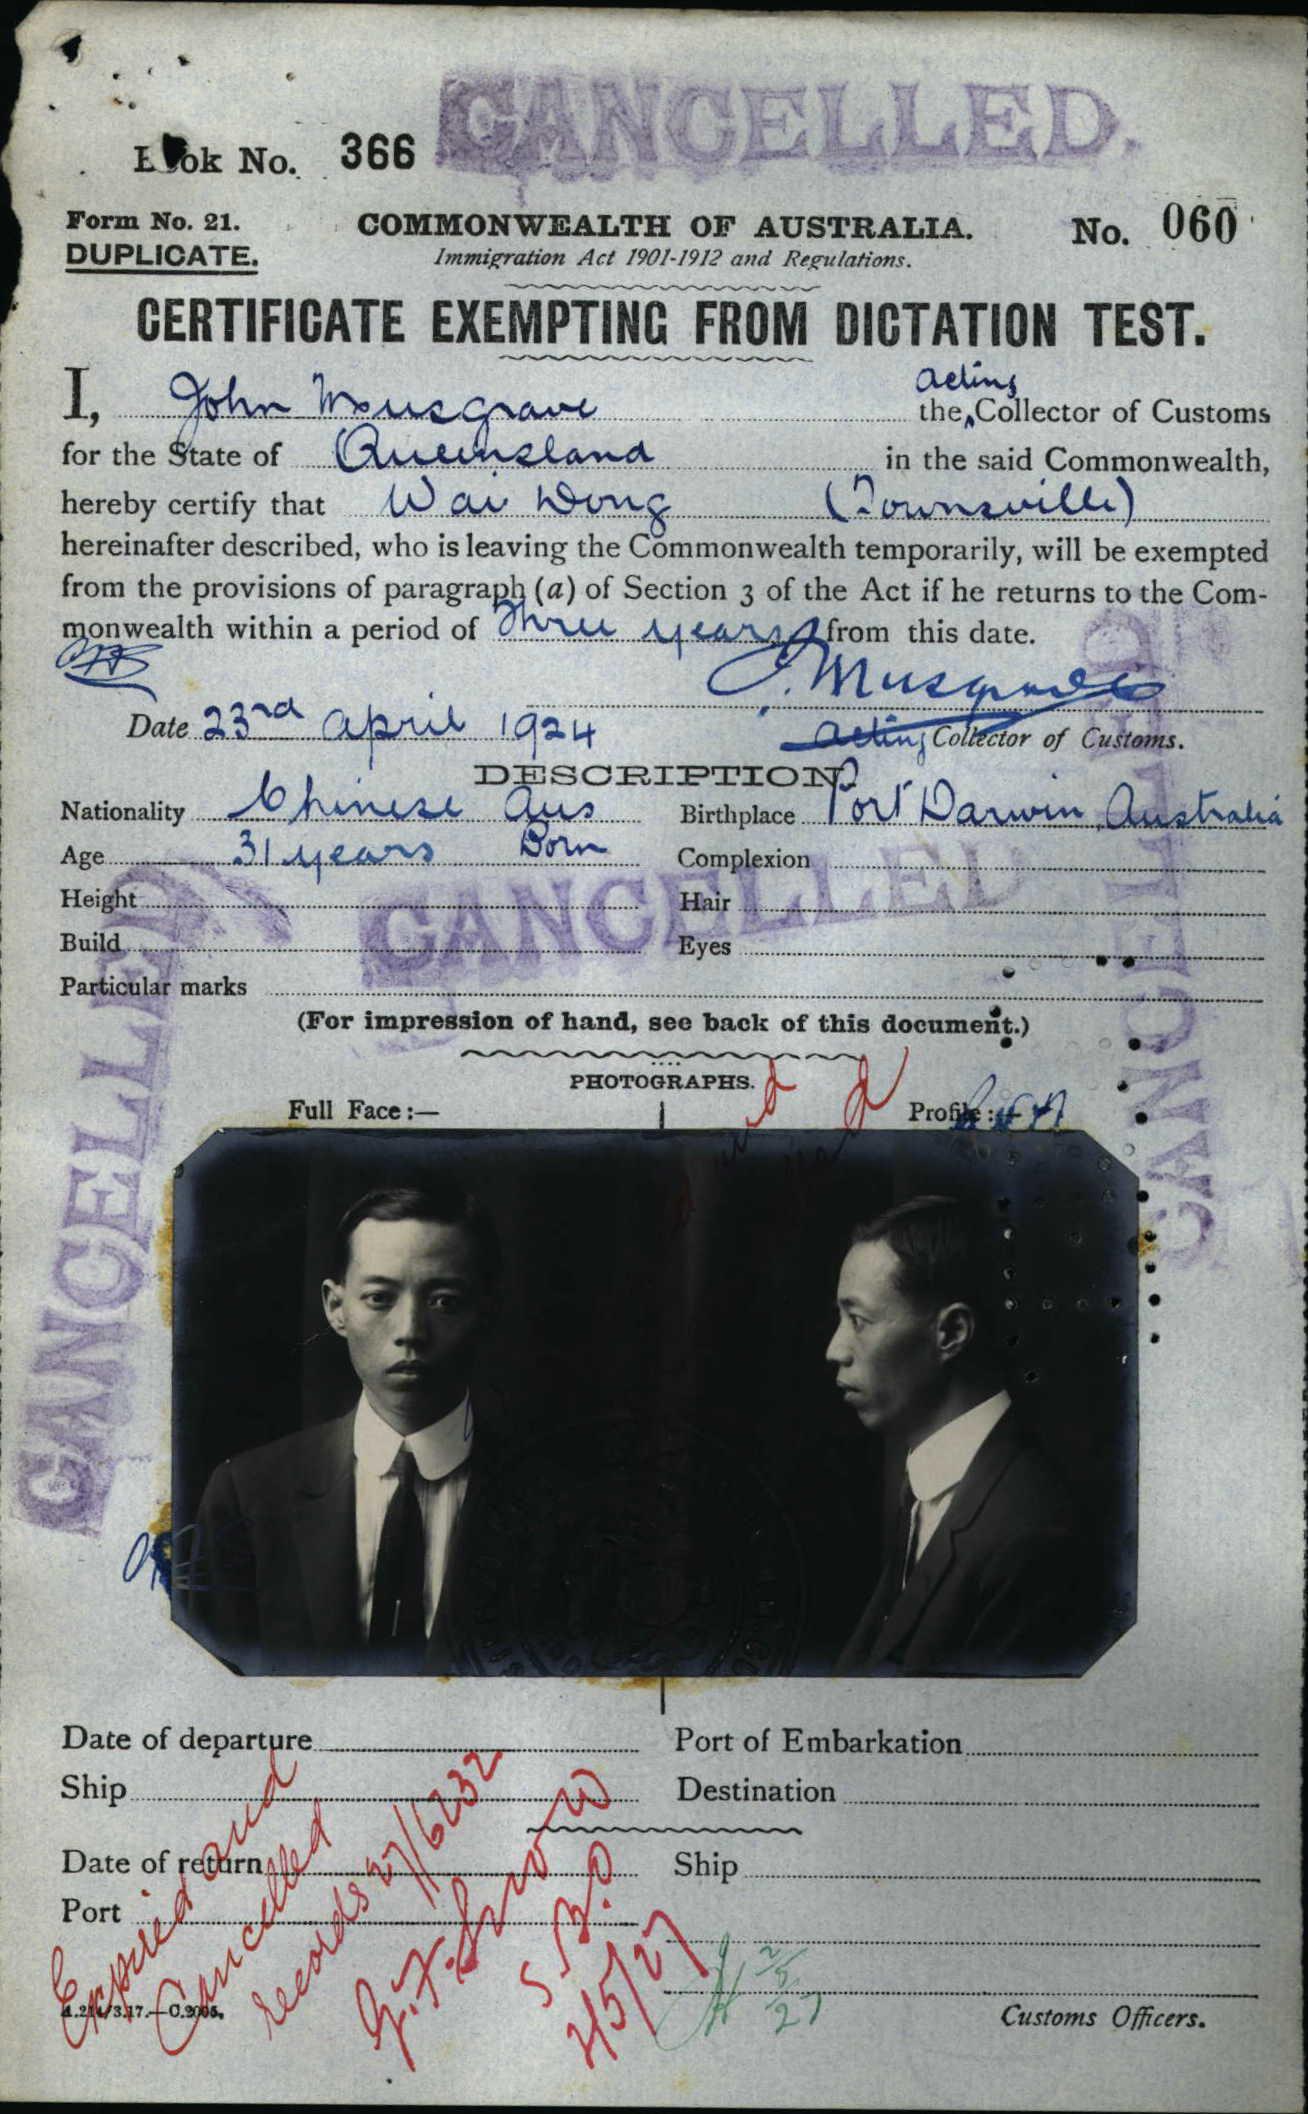 CANCELLED.
Book No. 366
Form No. 21. COMMONWEALTH OF AUSTRALIA. No. 060
DUPLICATE. Immigration Act 1901-1912 and Regulations.
CERTIFICATE EXEMPTING FROM DICTATION TEST.
I, John Musgrave the Acting Collector of Customs
for the State of Queensland in the said Commonwealth,
hereby certify that Wai Dong (Townsville)
hereinafter described, who is leaving the Commonwealth temporarily, will be exempted
from the provisions of paragraph (a) of Section 3 of the Act if he returns to the Com-
monwealth within a period of Three years from this date.
J. Musgrave
Date 23rd April 1924 Acting Collector of Customs.
DESCRIPTION.
Nationality Chinese Aus Born Birthplace Port Darwin, Australia
Age 31 years Complexion
Height Hair
CANCELLED
Build Eyes
Particular marks
CANCELLED
CANCELLED
(For impression of hand, see back of this document.)
PHOTOGRAPHS.
Full Face:— Profile:—
Date of departure Port of Embarkation
Ship Destination
Date of return Ship
Port
Expired and
Cancelled
records 27/6232
2/5/27
2/5/27
Customs Officers.